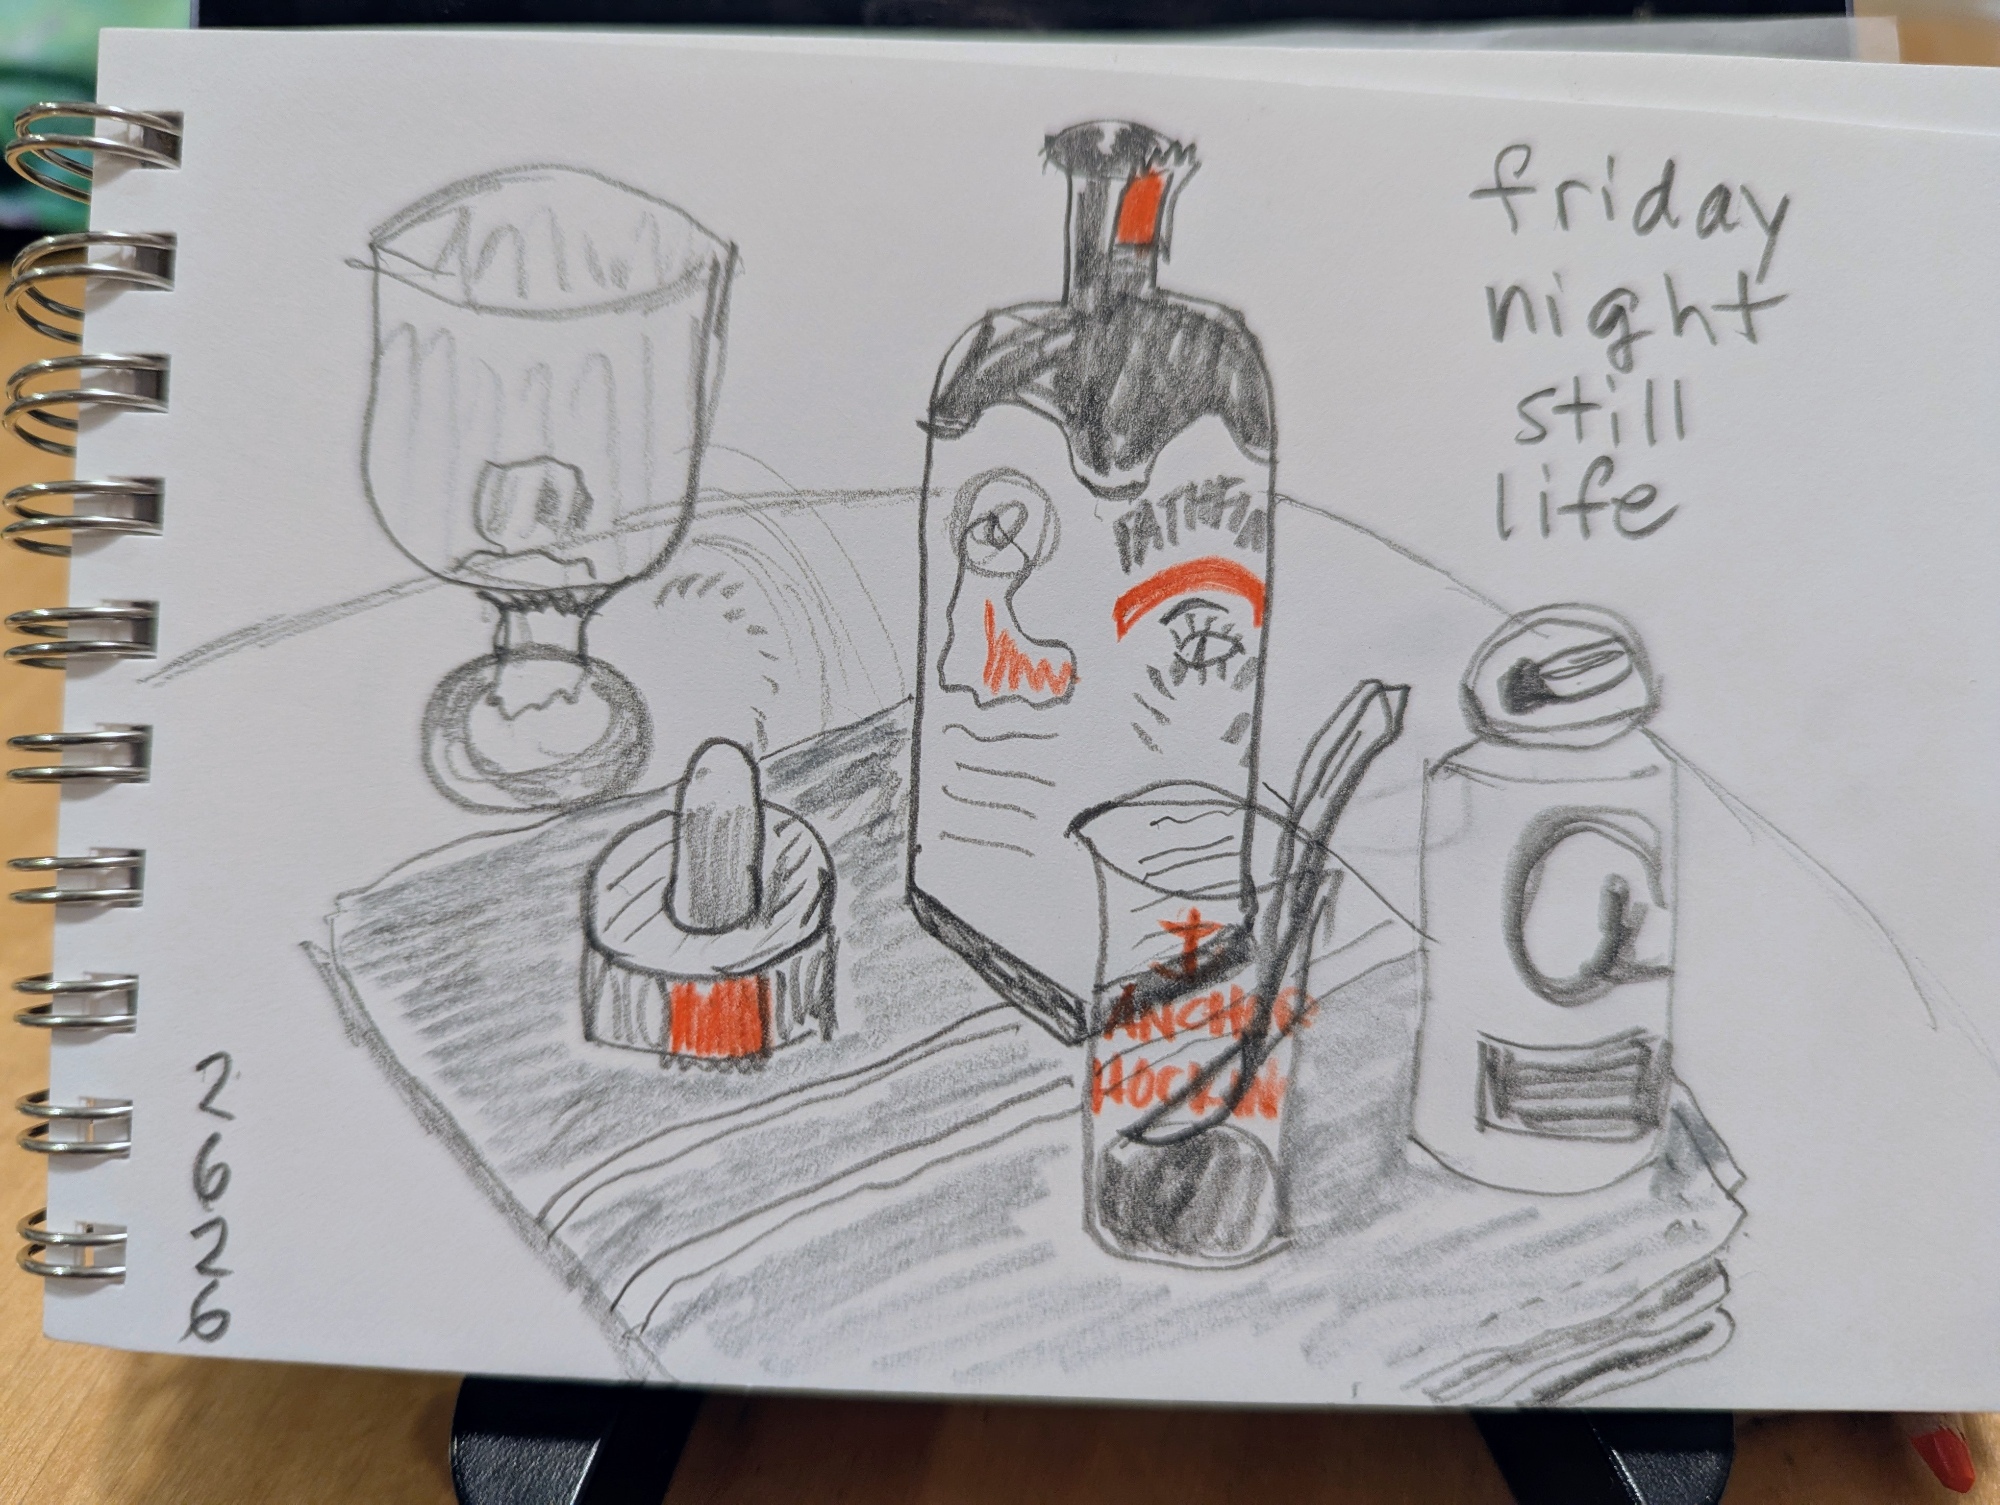 friday
night
still
life
ANCHOR
HOCKIN
2
6
2
6